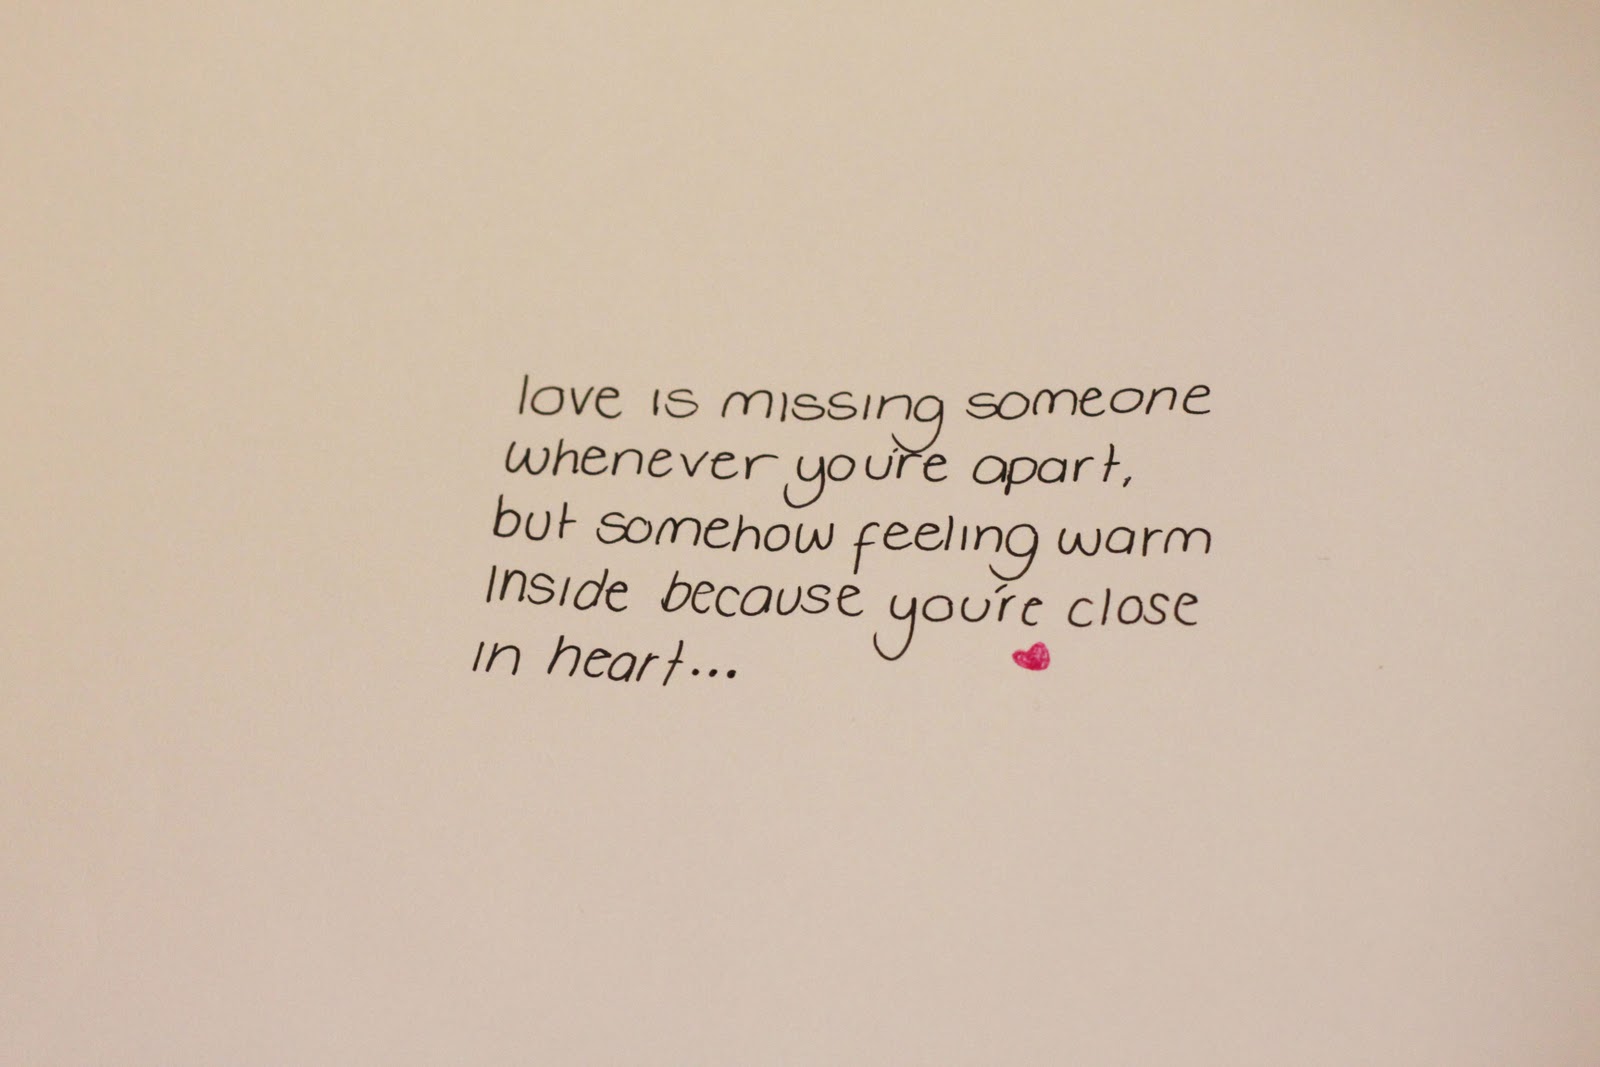 love is missing someone
whenever you're apart,
but somehow feeling warm
inside because you're close
in heart...